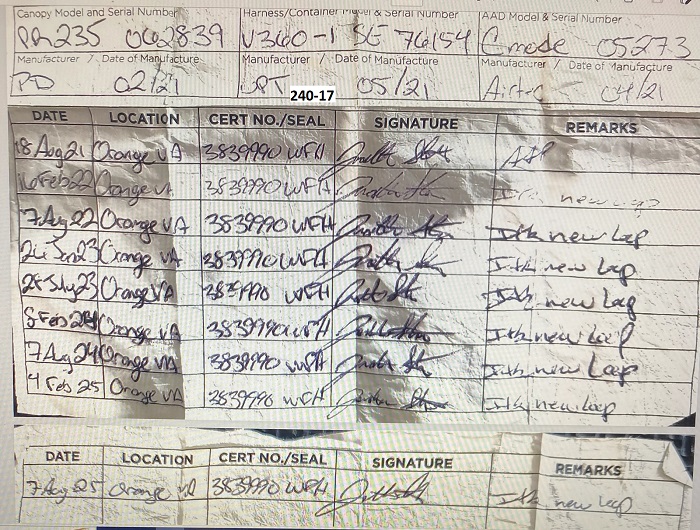 Canopy Model and Serial Number Harness/Container Model & Serial Number AAD Model & Serial Number
PR235 062839 V360-1 SE 76154 Cmode 05273
Manufacturer / Date of Manufacture Manufacturer / Date of Manufacture Manufacturer / Date of Manufacture
PD 02/21 UPT 05/21 Airtec 04/21
240-17
DATE LOCATION CERT NO./SEAL SIGNATURE REMARKS
18 Aug 21 Orange VA 3839990 WFH AIR
16 Feb 22 Orange VA 3839990 WFH I+R new Loop
7 Aug 22 Orange VA 3839990 WFH I+R new Loop
Jan 23 Orange VA 3839990 WFH I+R new Loop
28 July 23 Orange VA 3839990 WFH I+R new Loop
8 Feb 24 Orange VA 3839990 WFH I+R new Loop
7 Aug 24 Orange VA 3839990 WFH I+R new Loop
4 Feb 25 Orange VA 3839990 WFH I+R new Loop
DATE LOCATION CERT NO./SEAL SIGNATURE REMARKS
7 Aug 25 Orange VA 3839990 WFH I+R new Loop